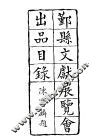 鄞縣文獻展覽會
出品目錄